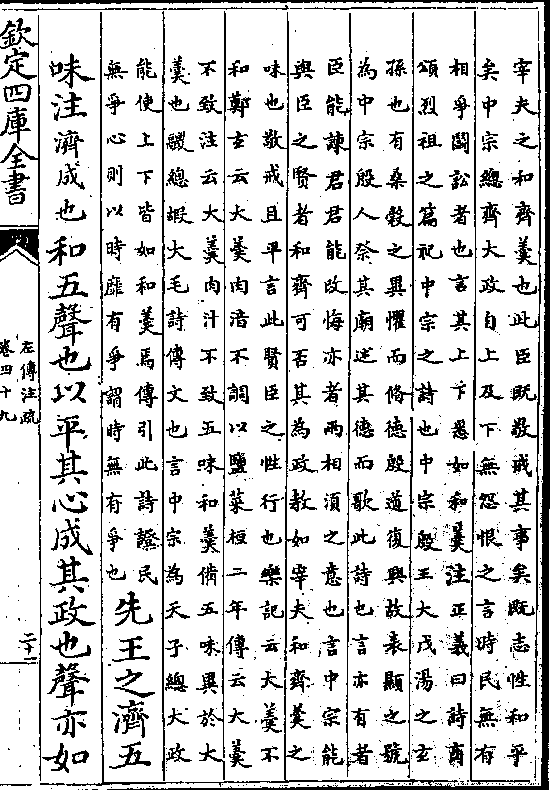 宰夫之和齊羮也此臣既敬戒其事矣既志性和乎
矣中宗總齊大政自上及下無怨恨之言時民無有
相爭鬭訟者也言其上下悉如和羮注正義曰詩商
頌烈祖之篇祀中宗之詩也中宗殷王大戊湯之玄
孫也有桑榖之異懼而脩德殷道復興故表顯之號
為中宗殷人祭其廟述其德而歌此詩也言亦有者
臣能諫君君能改悔亦者兩相須之意也言中宗能
與臣之賢者和齊可否其為政教如宰夫和齊羮之
味也敬戒且平言此賢臣之性行也樂記云大羮不
和鄭玄云大羮肉湆不調以鹽菜桓二年傳云大羮
不致注云大羮肉汁不致五味和羮備五味異於大
羮也鬷總嘏大毛詩傳文也言中宗為天子總大政
能使上下皆如和羮焉傳引此詩證民
無爭心則以時靡有爭謂時無有爭也
先王之濟五
味注濟成也和五聲也以平其心成其政也聲亦如
欽定四庫全書
左傳注疏
卷四十九
二十一